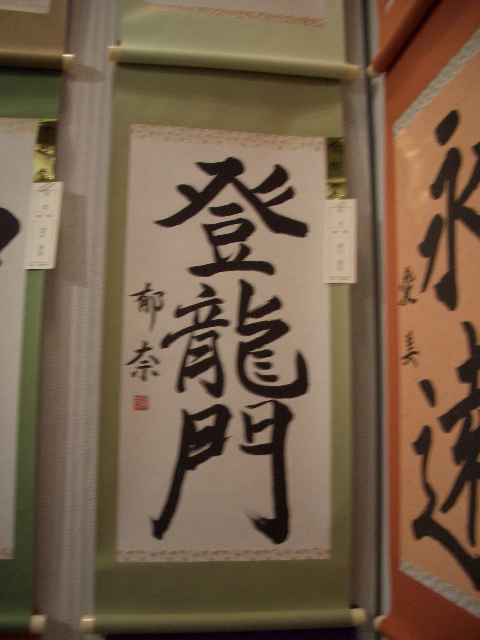 登龍門
郁奈
永遠
愛美